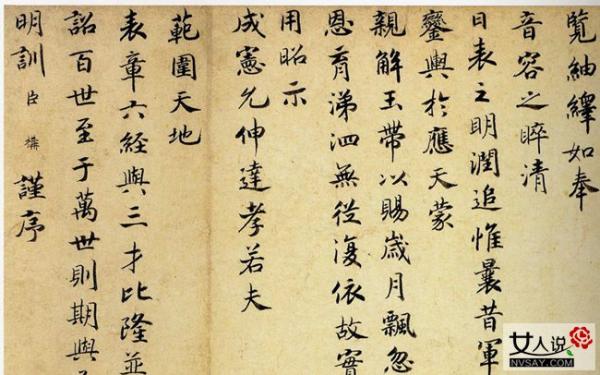 覽紬繹如奉
音容之睟清
日表之明潤追惟曩昔軍
鑾輿於應天蒙
親解玉帶以賜歲月飄忽
恩育涕泗無從復依故實
用昭示
成憲允伸達孝若夫
範圍天地
表章六經與三才比隆並
詔百世至于萬世則期與
明訓臣構謹序
女人说
NVSAY.COM